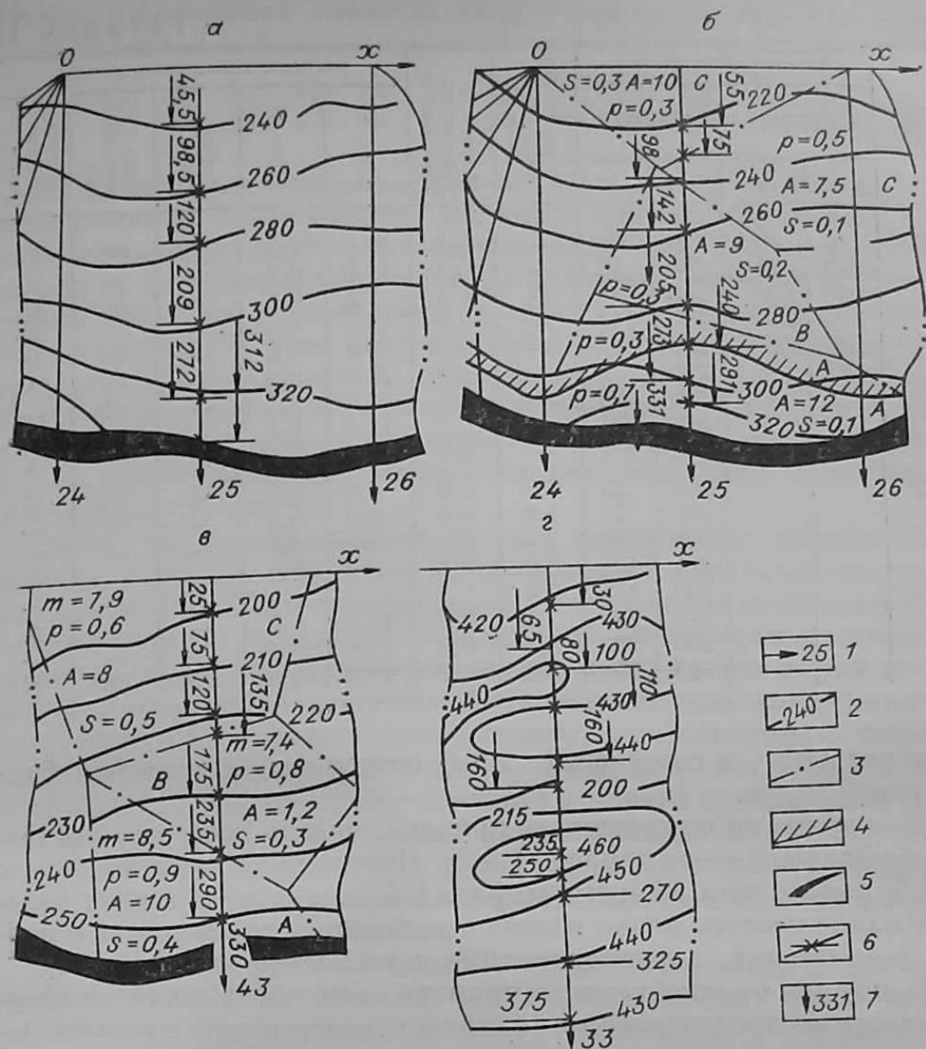 а
O x
45,5 240
98,5 260
120 280
209 300
272 312
320
24 25 26
б
O x
S=0,3 A=10 C 55 220
p=0,3 75
98 p=0,5
240 A=7,5 C
142 260 S=0,1
A=9
205 S=0,2
p=0,3 240 280
B
p=0,3 273 A
291 300
p=0,7 331 A=12 A
320 S=0,1
24 25 26
в
x
m=7,9 25 200
p=0,6 C
75 210
A=8 120 135
220
S=0,5
m=7,4
B 175 p=0,8
230 A=1,2
m=8,5 235 S=0,3
240 p=0,9
A=10 290
250 A
S=0,4 330
43
г
x
30
420 65 430
80 100
440 110
430
160 440
160 200
215
235 460
250 450
270
440
325
375 430
33
25 1
240 2
3
4
5
6
331 7